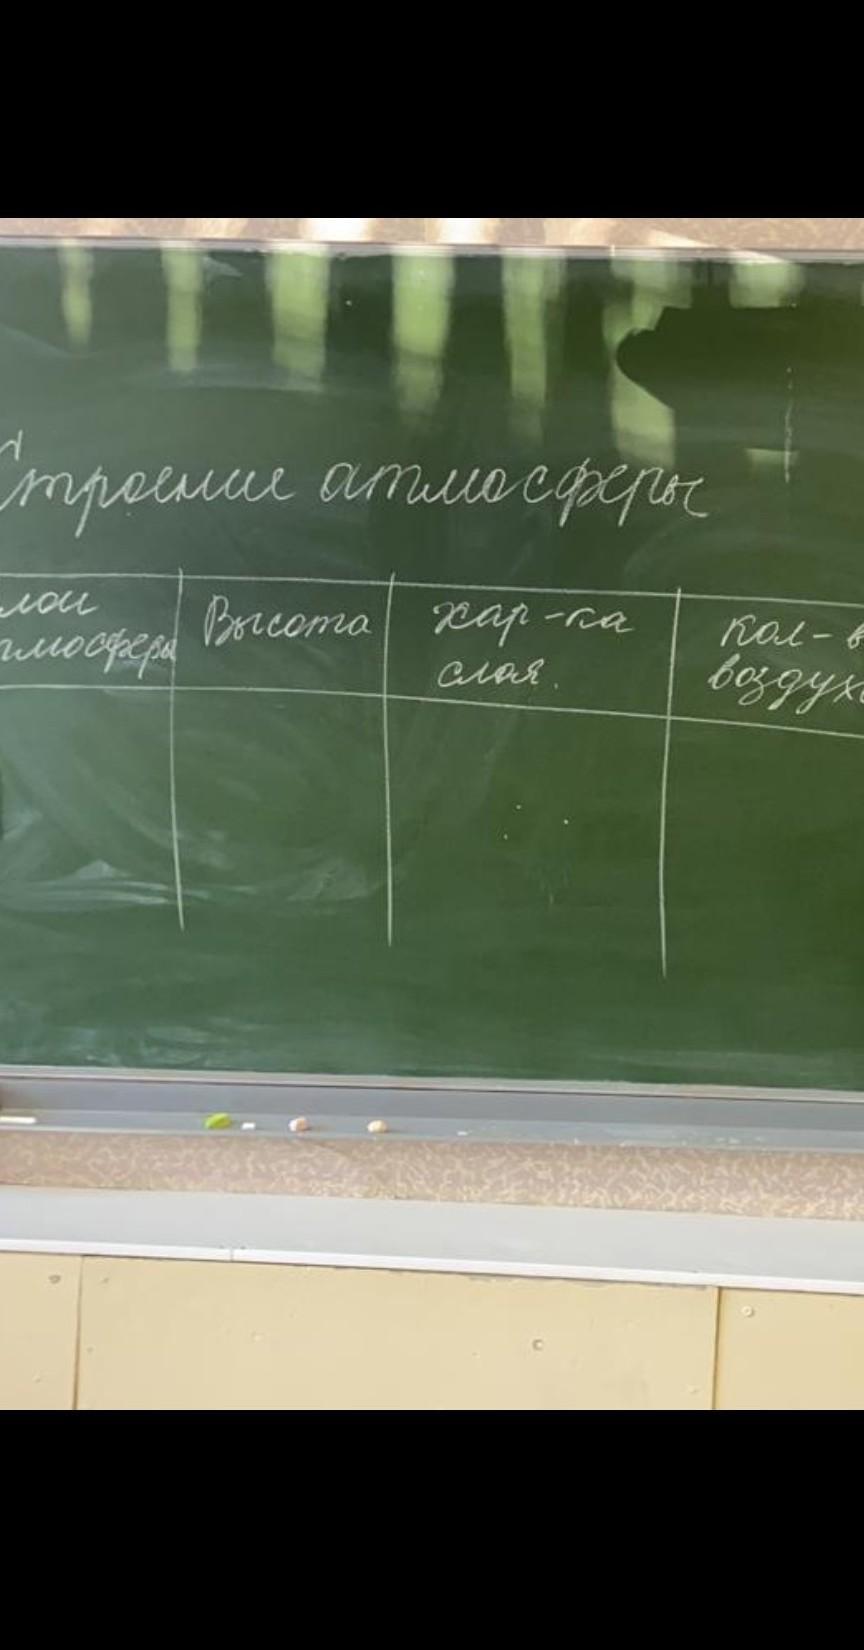 Строение атмосферы
лои
тмосферы
Высота
хар-ка
слоя.
Кол-в
воздух